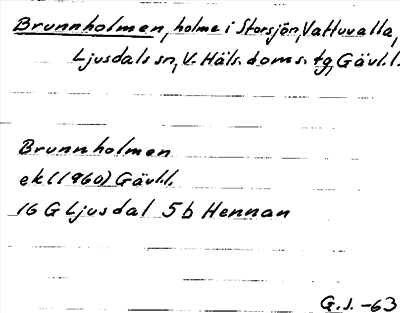 Brunnholmen, holme i Storsjön, Vattuvalla,
Ljusdals sn, V. Häls. doms. tg, Gävl.l.
Brunnholmen
ek (1960) Gävl.l.
16 G Ljusdal 5b Hennan
G.J. -63